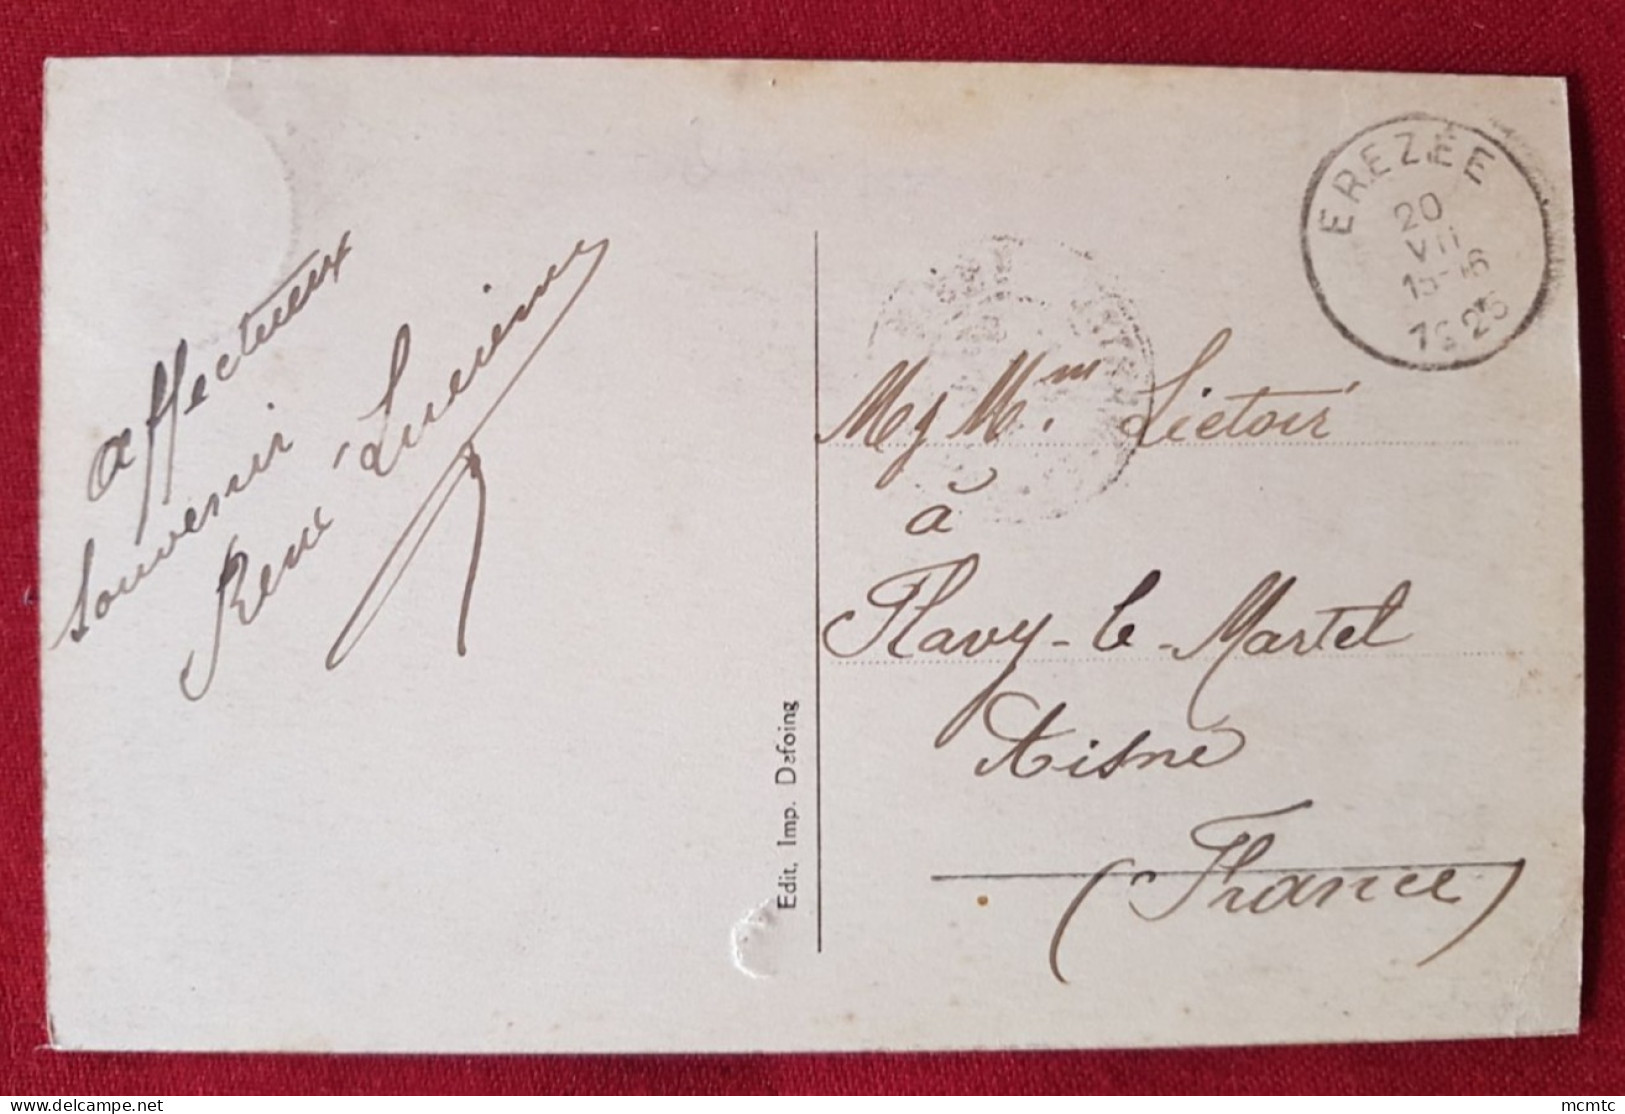 affectueux
souvenir
René Lucienne
Edit. Imp. Defoing
EREZÉE
20
VII
15-16
1925
M & Mm. Lietoir
à
Flavy-le-Martel
Aisne
(France)
mcmtc